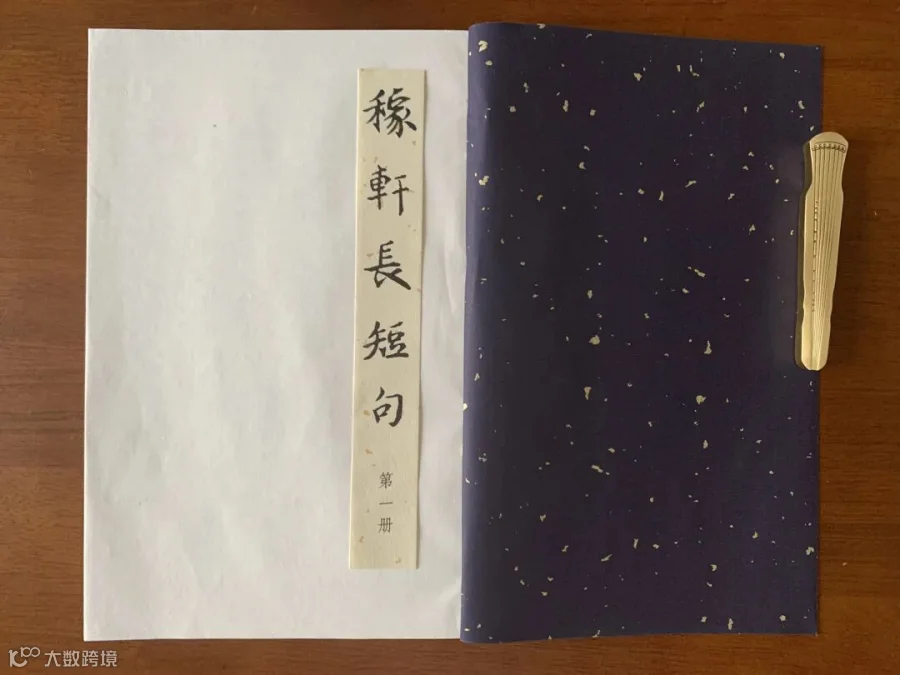 稼軒長短句
第一册
大数跨境